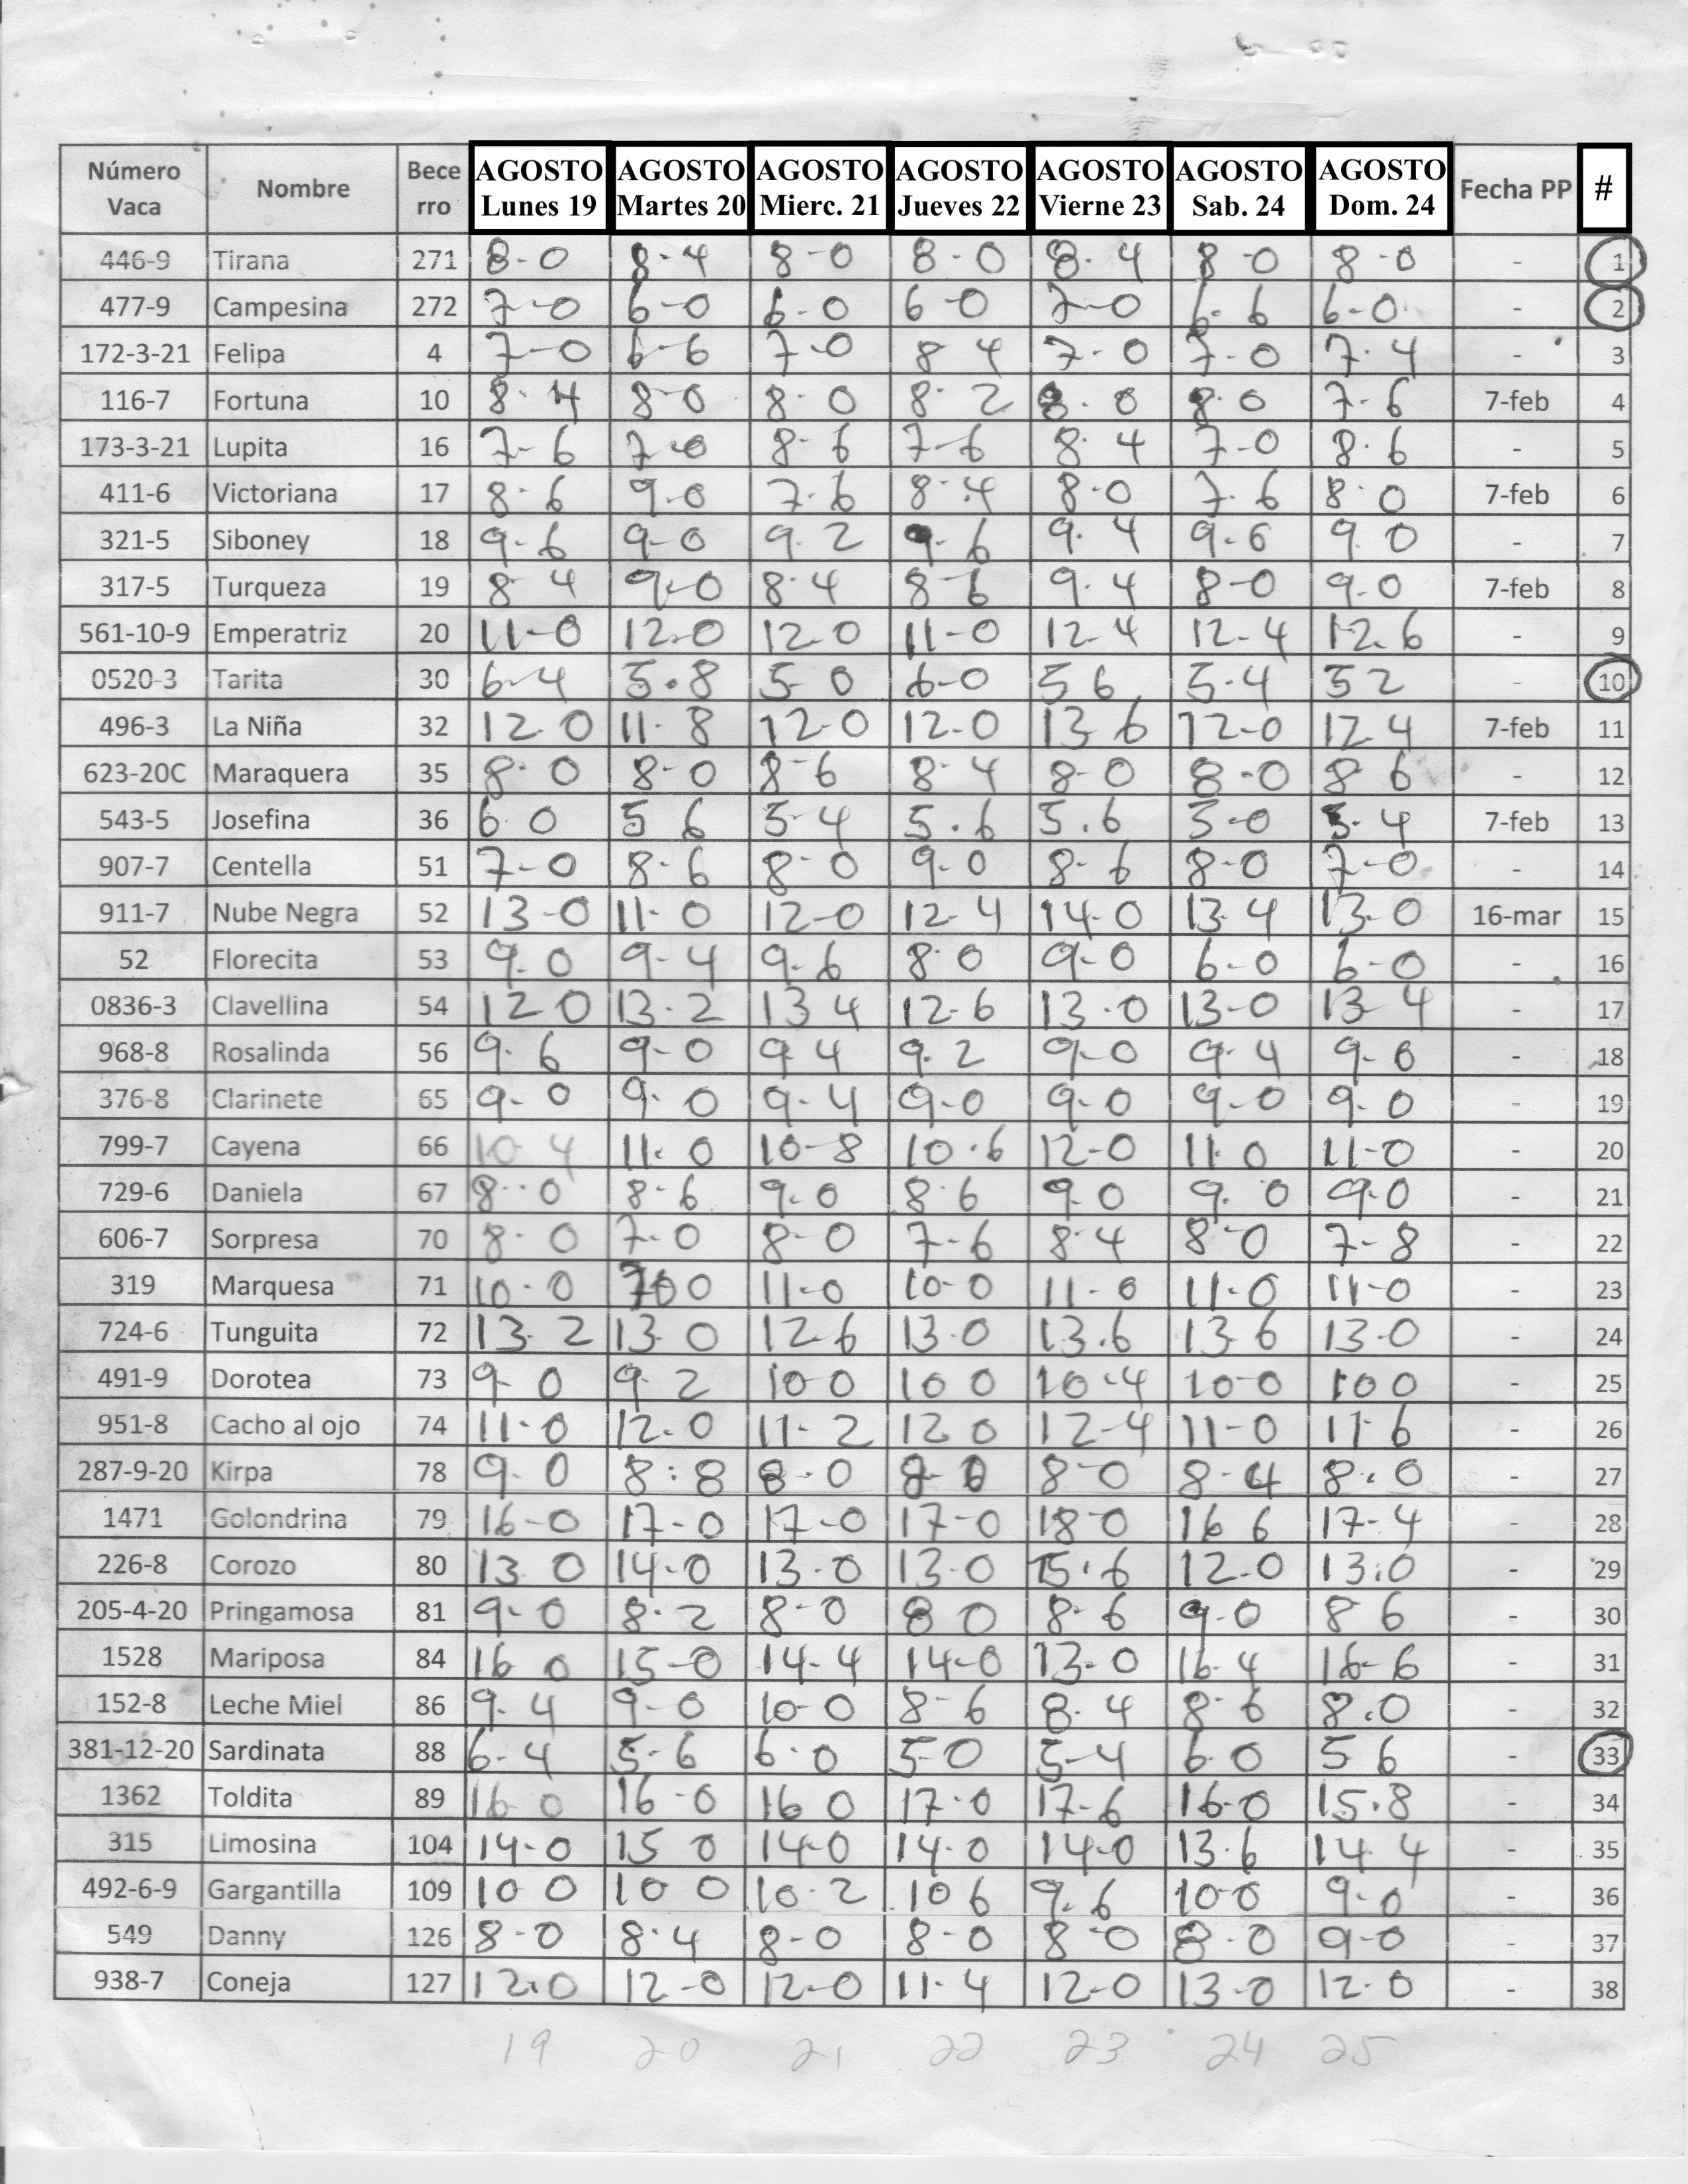 Número Vaca Nombre Bece rro AGOSTO Lunes 19 AGOSTO Martes 20 AGOSTO Mierc. 21 AGOSTO Jueves 22 AGOSTO Vierne 23 AGOSTO Sab. 24 AGOSTO Dom. 24 Fecha PP #
446-9 Tirana 271 8-0 8-4 8-0 8-0 8-4 8-0 8-0 - 1
477-9 Campesina 272 7-0 6-0 6-0 6 0 7-0 6-6 6-0 - 2
172-3-21 Felipa 4 7-0 6-6 7-0 8 4 7-0 7-0 7-4 - 3
116-7 Fortuna 10 8-4 8-0 8-0 8-2 8-0 8-0 7-6 7-feb 4
173-3-21 Lupita 16 7-6 7-0 8-6 7-6 8-4 7-0 8-6 - 5
411-6 Victoriana 17 8-6 9-0 7-6 8-4 8-0 7-6 8-0 7-feb 6
321-5 Siboney 18 9-6 9-0 9.2 9-6 9.4 9-6 9.0 - 7
317-5 Turqueza 19 8-4 9-0 8-4 8-6 9.4 8-0 9-0 7-feb 8
561-10-9 Emperatriz 20 11-0 12-0 12-0 11-0 12-4 12-4 12.6 - 9
0520-3 Tarita 30 6-4 5.8 5-0 6-0 5 6 5.4 5 2 - 10
496-3 La Niña 32 12.0 11-8 12-0 12-0 13 6 12-0 12 4 7-feb 11
623-20C Maraquera 35 8-0 8-0 8-6 8-4 8-0 8-0 8 6 - 12
543-5 Josefina 36 6 0 5 6 5-4 5.6 5.6 5-0 5-4 7-feb 13
907-7 Centella 51 7-0 8-6 8-0 9-0 8-6 8-0 7-0 - 14
911-7 Nube Negra 52 13-0 11-0 12-0 12-4 14-0 13-4 13-0 16-mar 15
52 Florecita 53 9.0 9-4 9-6 8-0 9-0 6-0 6-0 - 16
0836-3 Clavellina 54 12 0 13-2 13 4 12-6 13-0 13-0 13-4 - 17
968-8 Rosalinda 56 9-6 9-0 9-4 9.2 9-0 9-4 9-0 - 18
376-8 Clarinete 65 9-0 9-0 9-4 9-0 9-0 9-0 9-0 - 19
799-7 Cayena 66 10 4 11-0 10-8 10-6 12-0 11-0 11-0 - 20
729-6 Daniela 67 8-0 8-6 9-0 8-6 9.0 9.0 9-0 - 21
606-7 Sorpresa 70 8-0 7-0 8-0 7-6 8-4 8-0 7-8 - 22
319 Marquesa 71 10-0 10 0 11-0 10-0 11-0 11-0 11-0 - 23
724-6 Tunguita 72 13-2 13 0 12-6 13-0 13.6 13 6 13-0 - 24
491-9 Dorotea 73 9-0 9-2 10 0 10 0 10-4 10-0 10 0 - 25
951-8 Cacho al ojo 74 11-0 12-0 11-2 12 0 12-4 11-0 11-6 - 26
287-9-20 Kirpa 78 9-0 8:8 8-0 8-0 8-0 8-4 8.0 - 27
1471 Golondrina 79 16-0 17-0 17-0 17-0 18-0 16 6 17-4 - 28
226-8 Corozo 80 13 0 14-0 13-0 13-0 15-6 12-0 13:0 - 29
205-4-20 Pringamosa 81 9-0 8-2 8-0 8 0 8-6 9-0 8 6 - 30
1528 Mariposa 84 16 0 15-0 14-4 14-0 13-0 16-4 16-6 - 31
152-8 Leche Miel 86 9-4 9-0 10-0 8-6 8-4 8-6 8.0 - 32
381-12-20 Sardinata 88 6-4 5-6 6-0 5-0 5-4 6-0 5 6 - 33
1362 Toldita 89 16 0 16-0 16 0 17-0 17-6 16-0 15.8 - 34
315 Limosina 104 14-0 15 0 14-0 14-0 14-0 13-6 14 4 - 35
492-6-9 Gargantilla 109 10 0 10 0 10-2 10 6 9.6 10-0 9-0 - 36
549 Danny 126 8-0 8-4 8-0 8-0 8-0 8-0 9-0 - 37
938-7 Coneja 127 12.0 12-0 12-0 11-4 12-0 13-0 12-0 - 38
19 20 21 22 23 24 25